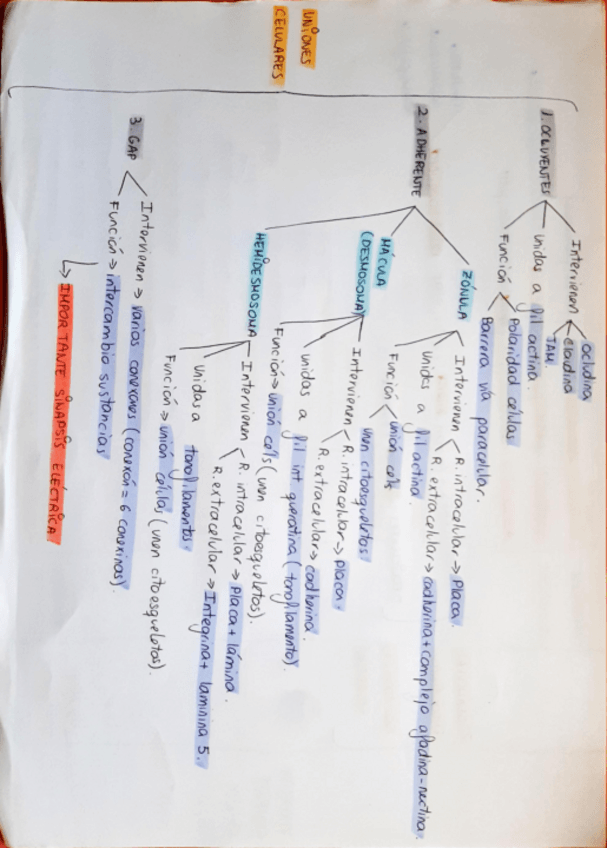 UNIONES
CELULARES
1. OCLUYENTES
Intervienen
ocludina
claudina
JAM
unidas a fil actina.
Función
Polaridad células
Barrera vía paracelular.
2. ADHERENTE
ZÓNULA
Intervienen
R. intracelular → Placa.
R. extracelular → cadherina + complejo afadina-nectina.
unidas a fil actina.
Función
unión cels
unen citoesqueletos
MÁCULA
(DESMOSOMA)
Intervienen
R. intracelular → placa.
R. extracelular → cadherina.
unidas a fil int queratina (tonofilamento).
Función → unión cels (unen citoesqueletos).
HEMIDESMOSOMA
Intervienen
R. intracelular → Placa + lámina.
R. extracelular → Integrina + laminina 5.
unidas a tonofilamentos.
Función → unión células (unen citoesqueletos).
3. GAP
Intervienen → varios conexones (conexón = 6 conexinas).
Función → intercambio sustancias
↳ IMPORTANTE SINAPSIS ELÉCTRICA